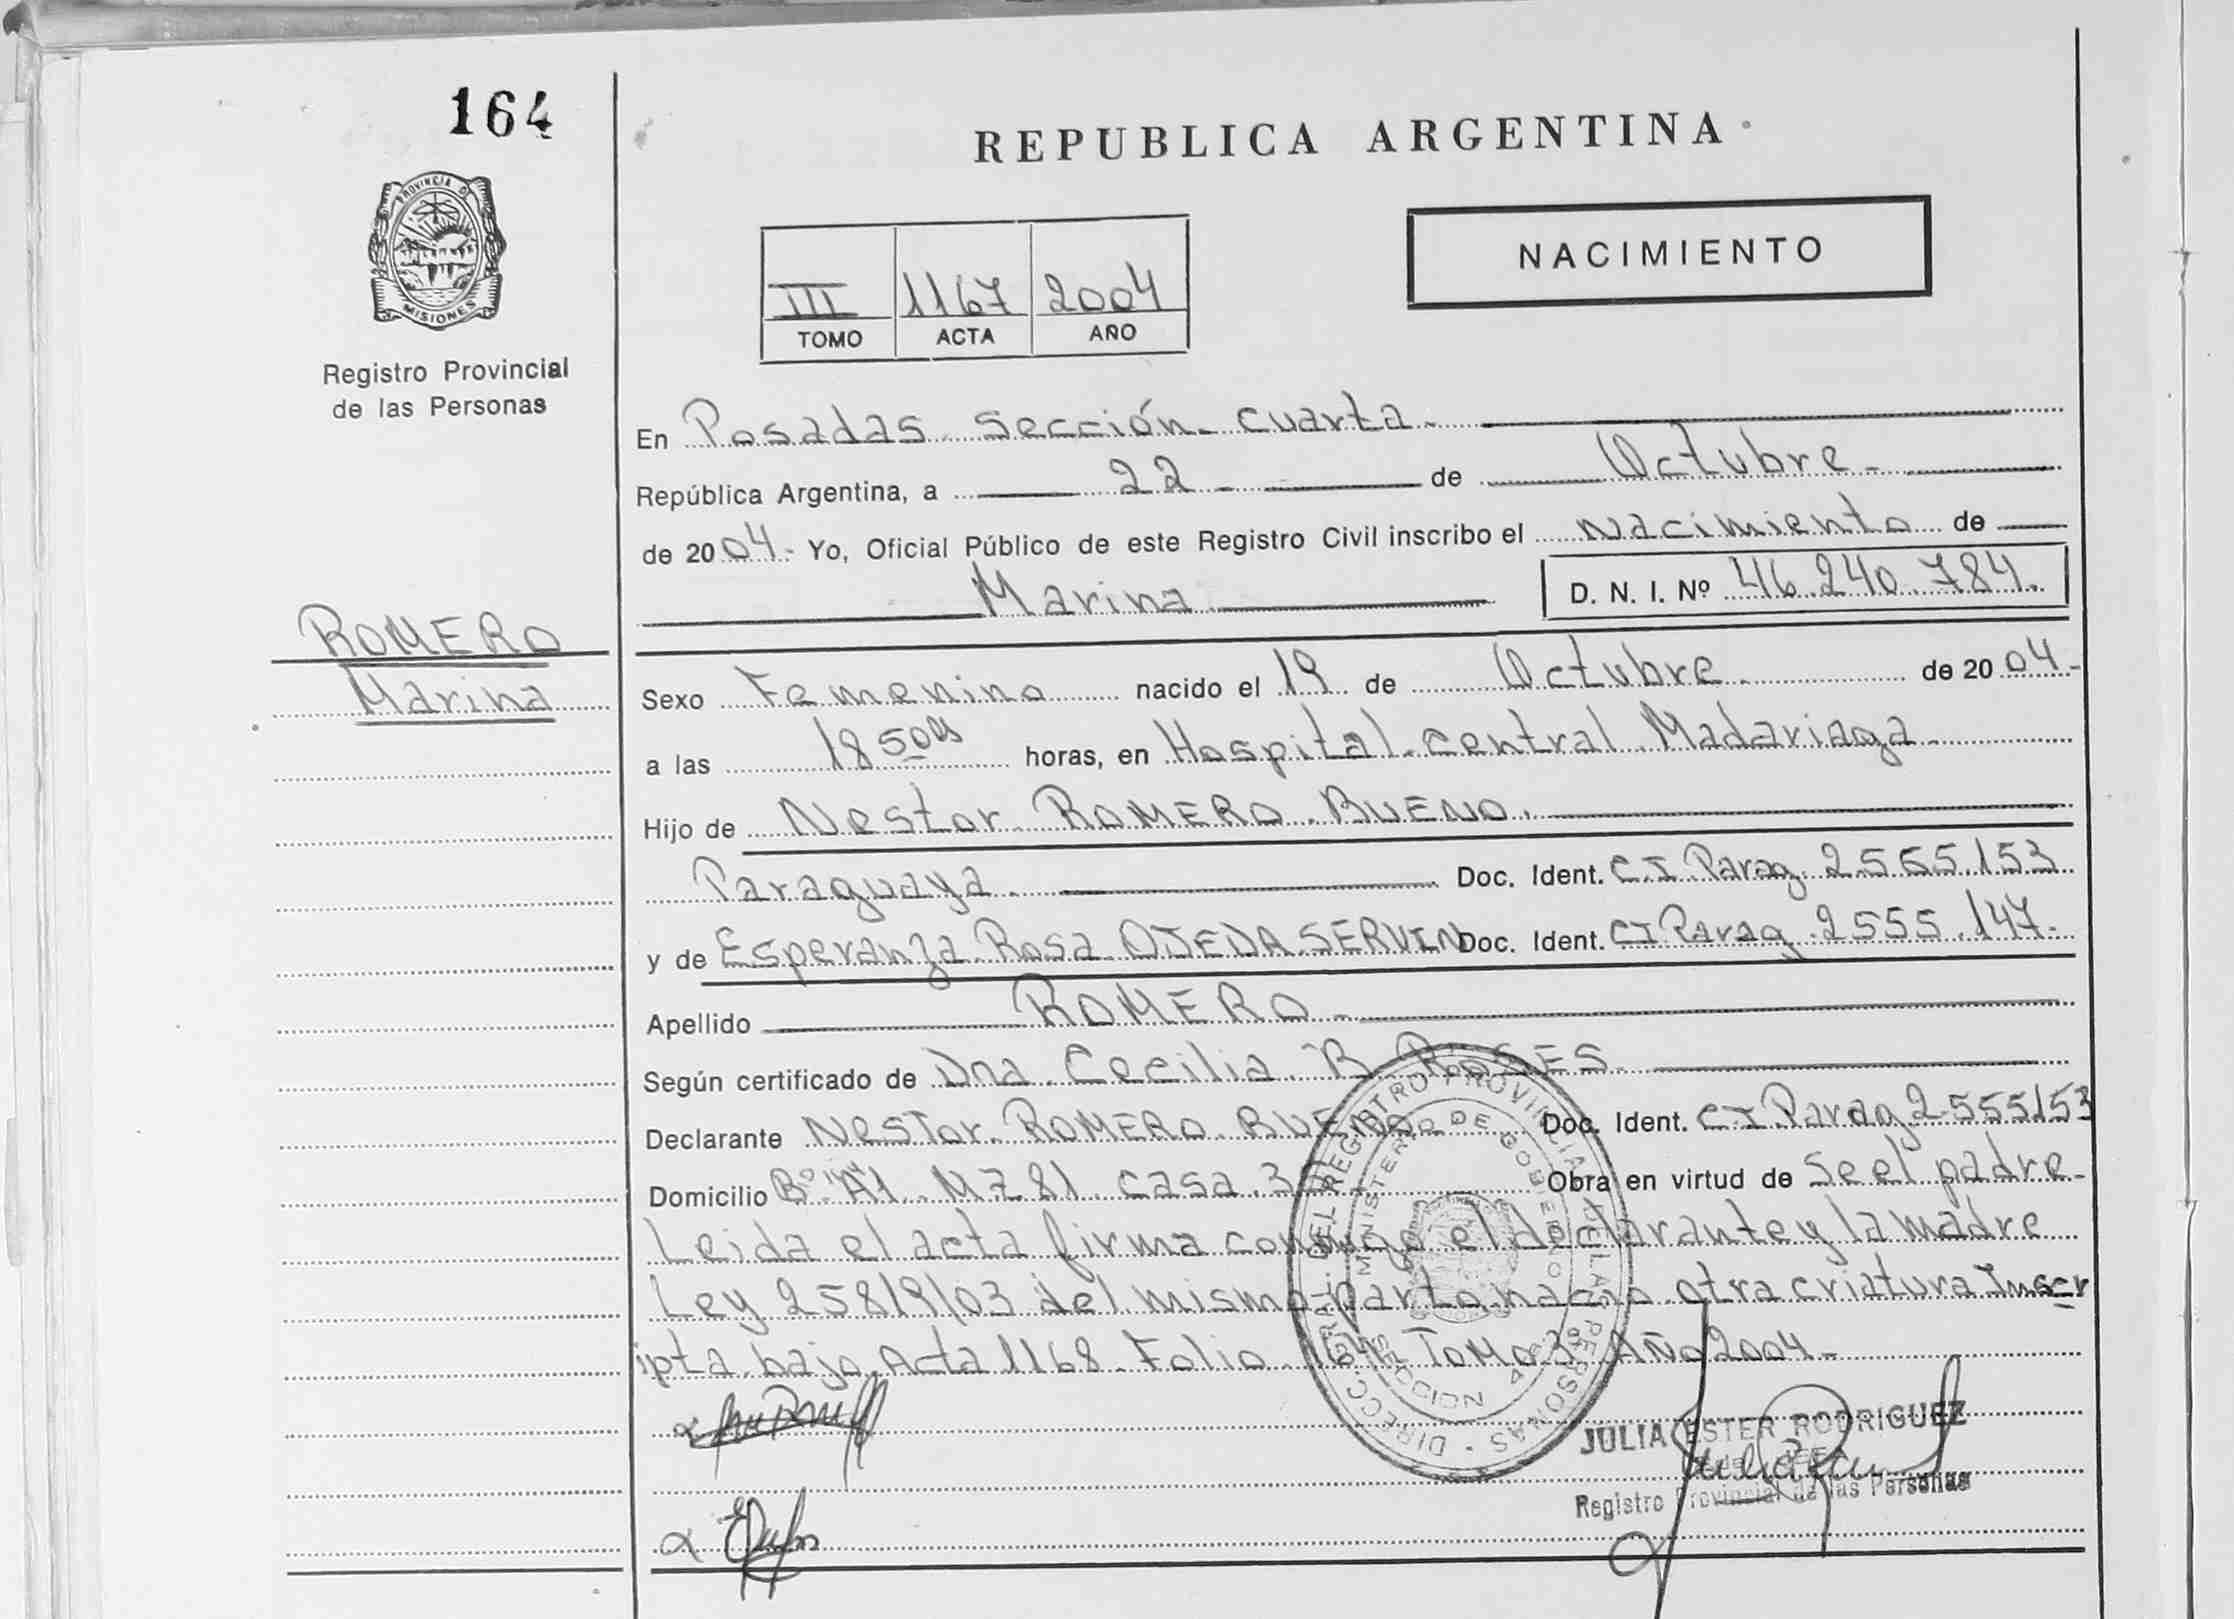 164
PROVINCIA DE
MISIONES
Registro Provincial
de las Personas
REPUBLICA ARGENTINA
NACIMIENTO
III 1167 2004
TOMO ACTA AÑO
En Posadas Sección Cuarta.
República Argentina, a 22 de Octubre
de 2004 Yo, Oficial Público de este Registro Civil inscribo el nacimiento de
Marina D. N. I. Nº 46.240.784.
ROMERO
Marina
Sexo Femenino nacido el 19 de Octubre de 2004
a las 18 50 horas, en Hospital central Madariaga
Hijo de Nestor ROMERO BUENO.
Paraguaya Doc. Ident. CI Parag. 2.555.153
y de Esperanza Rosa OJEDA SERVIN Doc. Ident. CI Parag. 2555.147.
Apellido ROMERO
Según certificado de Dna. Cecilia R ROSES
Declarante Nestor ROMERO BUENO Doc. Ident. CI Parag 2.555153
Domicilio Bº A1 MZ 81 casa Obra en virtud de se el padre
Leida el acta firma conmigo el declarante y la madre
Ley 25819/03 del mismo parto nacio otra criatura Inscr
ipta bajo Acta 1168 Folio 164 Tomo 3 Año 2004
DIRECC. GRAL. DEL REGISTRO PROVINCIAL DE LAS PERSONAS
MINISTERIO DE GOBIERNO
JULIA ESTER RODRIGUEZ
Registro Provincial de las Personas